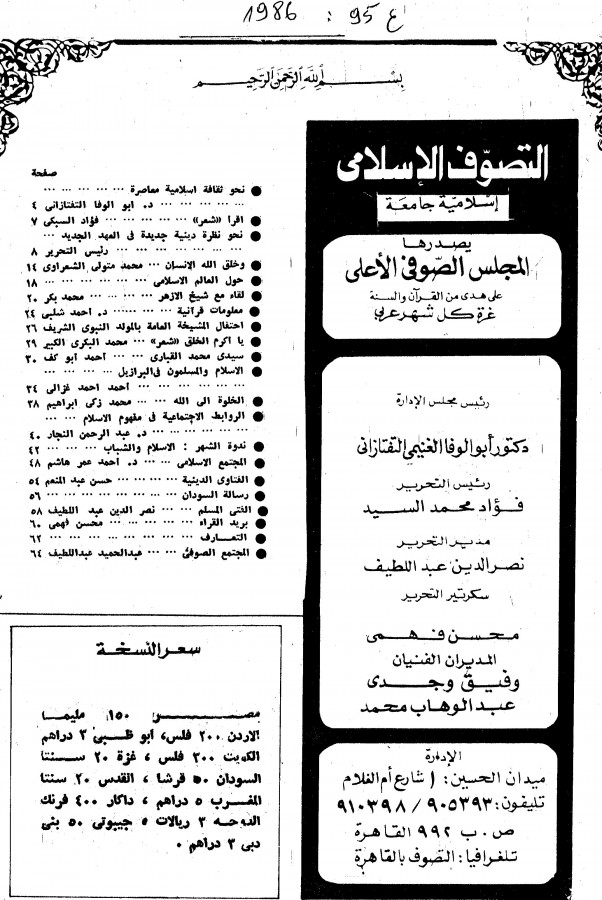 ع 95 : 1986
بسم الله الرحمن الرحيم
التصوّف الإسلامى
إسلاميّة جامعة
يصدرها
المجلس الصّوفى الأعلى
على هدى من القرآن والسنة
غرة كل شهر عربي
رئيس مجلس الإدارة
دكتور أبو الوفا الغنيمي التفتازانى
رئيس التحرير
فؤاد محمد السيد
مدير التحرير
نصر الدين عبد اللطيف
سكرتير التحرير
محسن فهمى
المديران الفنيان
وفيق وجدى
عبد الوهاب محمد
الإدارة
ميدان الحسين: ١ شارع أم الغلام
تليفون: ٩٠٥٣٩٣ / ٩١٠٣٩٨
ص . ب ٩٩٢ القاهرة
تلغرافيا: التصوف بالقاهرة
صفحة
● نحو ثقافة اسلامية معاصرة ... ... ... ...
... ... ... ... د. ابو الوفا التفتازانى ٤
● اقرا «شعر» ... ... ... ... فؤاد السبكى ٧
● نحو نظرة دينية جديدة فى العهد الجديد ...
... ... ... ... ... ... رئيس التحرير ٨
● وخلق الله الانسان ... محمد متولى الشعراوى ١٤
● حول العالم الاسلامى ... ... ... ... ... ١٨
● لقاء مع شيخ الازهر ... ... ... محمد بكر ٢٠
● معلومات قرآنية ... ... ... د. احمد شلبى ٢٤
● احتفال المشيخة العامة بالمولد النبوى الشريف ٢٦
● يا اكرم الخلق «شعر» ... محمد البكرى الكبير ٢٩
● سيدى محمد القبارى ... ... احمد ابو كف ٣٠
● الاسلام والمسلمون فى البرازيل ... ... ...
... ... ... ... ... احمد احمد غزالى ٣٤
● الخلوة الى الله ... ... محمد زكى ابراهيم ٣٨
● الروابط الاجتماعية فى مفهوم الاسلام ... ...
... ... ... ... د. عبد الرحمن النجار ٤٠
● ندوة الشهر : الاسلام والشباب ... ... ... ٤٢
● المجتمع الاسلامى ... ... د. احمد عمر هاشم ٤٨
● الفتاوى الدينية ... ... ... حسن عبد المنعم ٥٤
● رسالة السودان ... ... ... ... ... ... ٥٦
● الفتى المسلم ... ... نصر الدين عبد اللطيف ٥٨
● بريد القراء ... ... ... ... محسن فهمى ٦٠
● التعارف ... ... ... ... ... ... ... ٦٢
● المجتمع الصوفى ... ... عبدالحميد عبداللطيف ٦٤
سعر النسخة
مصر ١٥٠ مليما
الاردن ٢٠٠ فلس، أبو ظبى ٣ دراهم
الكويت ٢٠٠ فلس ، غزة ٢٠ سنتا
السودان ٥٠ قرشا ، القدس ٢٠ سنتا
المغرب ٥ دراهم ، داكار ٤٠٠ فرنك
الدوحه ٣ ريالات ؟ جيبوتى ٥٠ بنى
دبى ٣ دراهم .